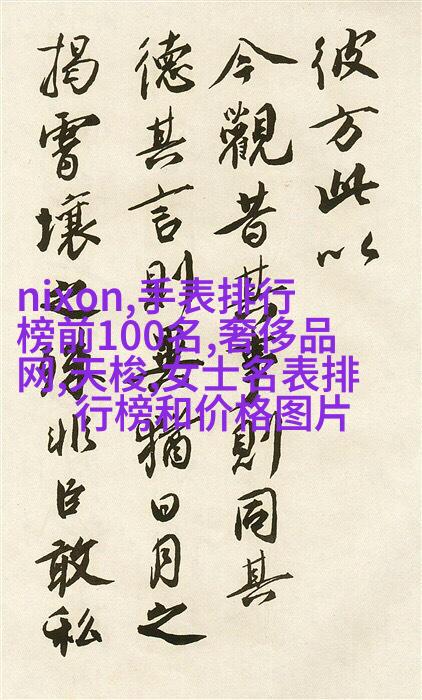 彼方此以
今觀昔其事則同其
德其言則猶日月之
揭霄壤之殊非臣敢私
nixon,手表排行
榜前100名,奢侈品
网,天梭,女士名表排
行榜和价格图片